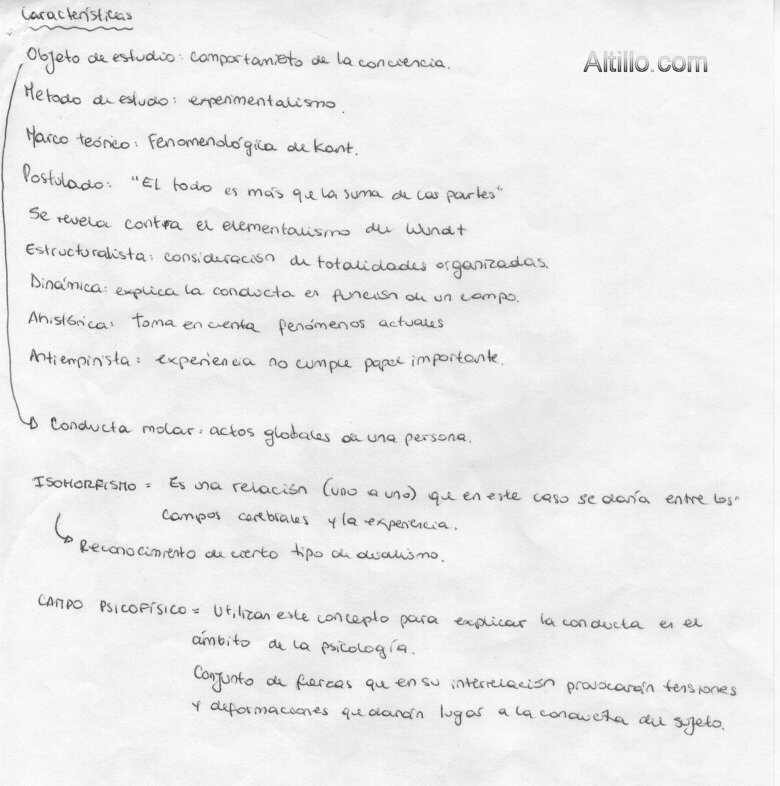 Características
Altillo.com
Objeto de estudio: comportamieto de la conciencia.
Metodo de estudo: experimentalismo.
Marco teórico: Fenomenológica de Kant.
Postulado: "El todo es más que la suma de las partes"
Se revela contra el elementalismo de Wundt
Estructuralista: consideración de totalidades organizadas.
Dinámica: explica la conducta en función de un campo.
Ahistórica: Toma en cuenta fenómenos actuales
Antiempirista: experiencia no cumple papel importante.
Conducta molar: actos globales de una persona.
ISOMORFISMO = Es una relación (uno a uno) que en este caso se daría entre los
campos cerebrales y la experiencia.
Reconocimiento de cierto tipo de dualismo.
CAMPO PSICOFÍSICO = Utilizan este concepto para explicar la conducta en el
ámbito de la psicología.
Conjunto de fuerzas que en su interrelación provocarán tensiones
y deformaciones que darán lugar a la conducta del sujeto.